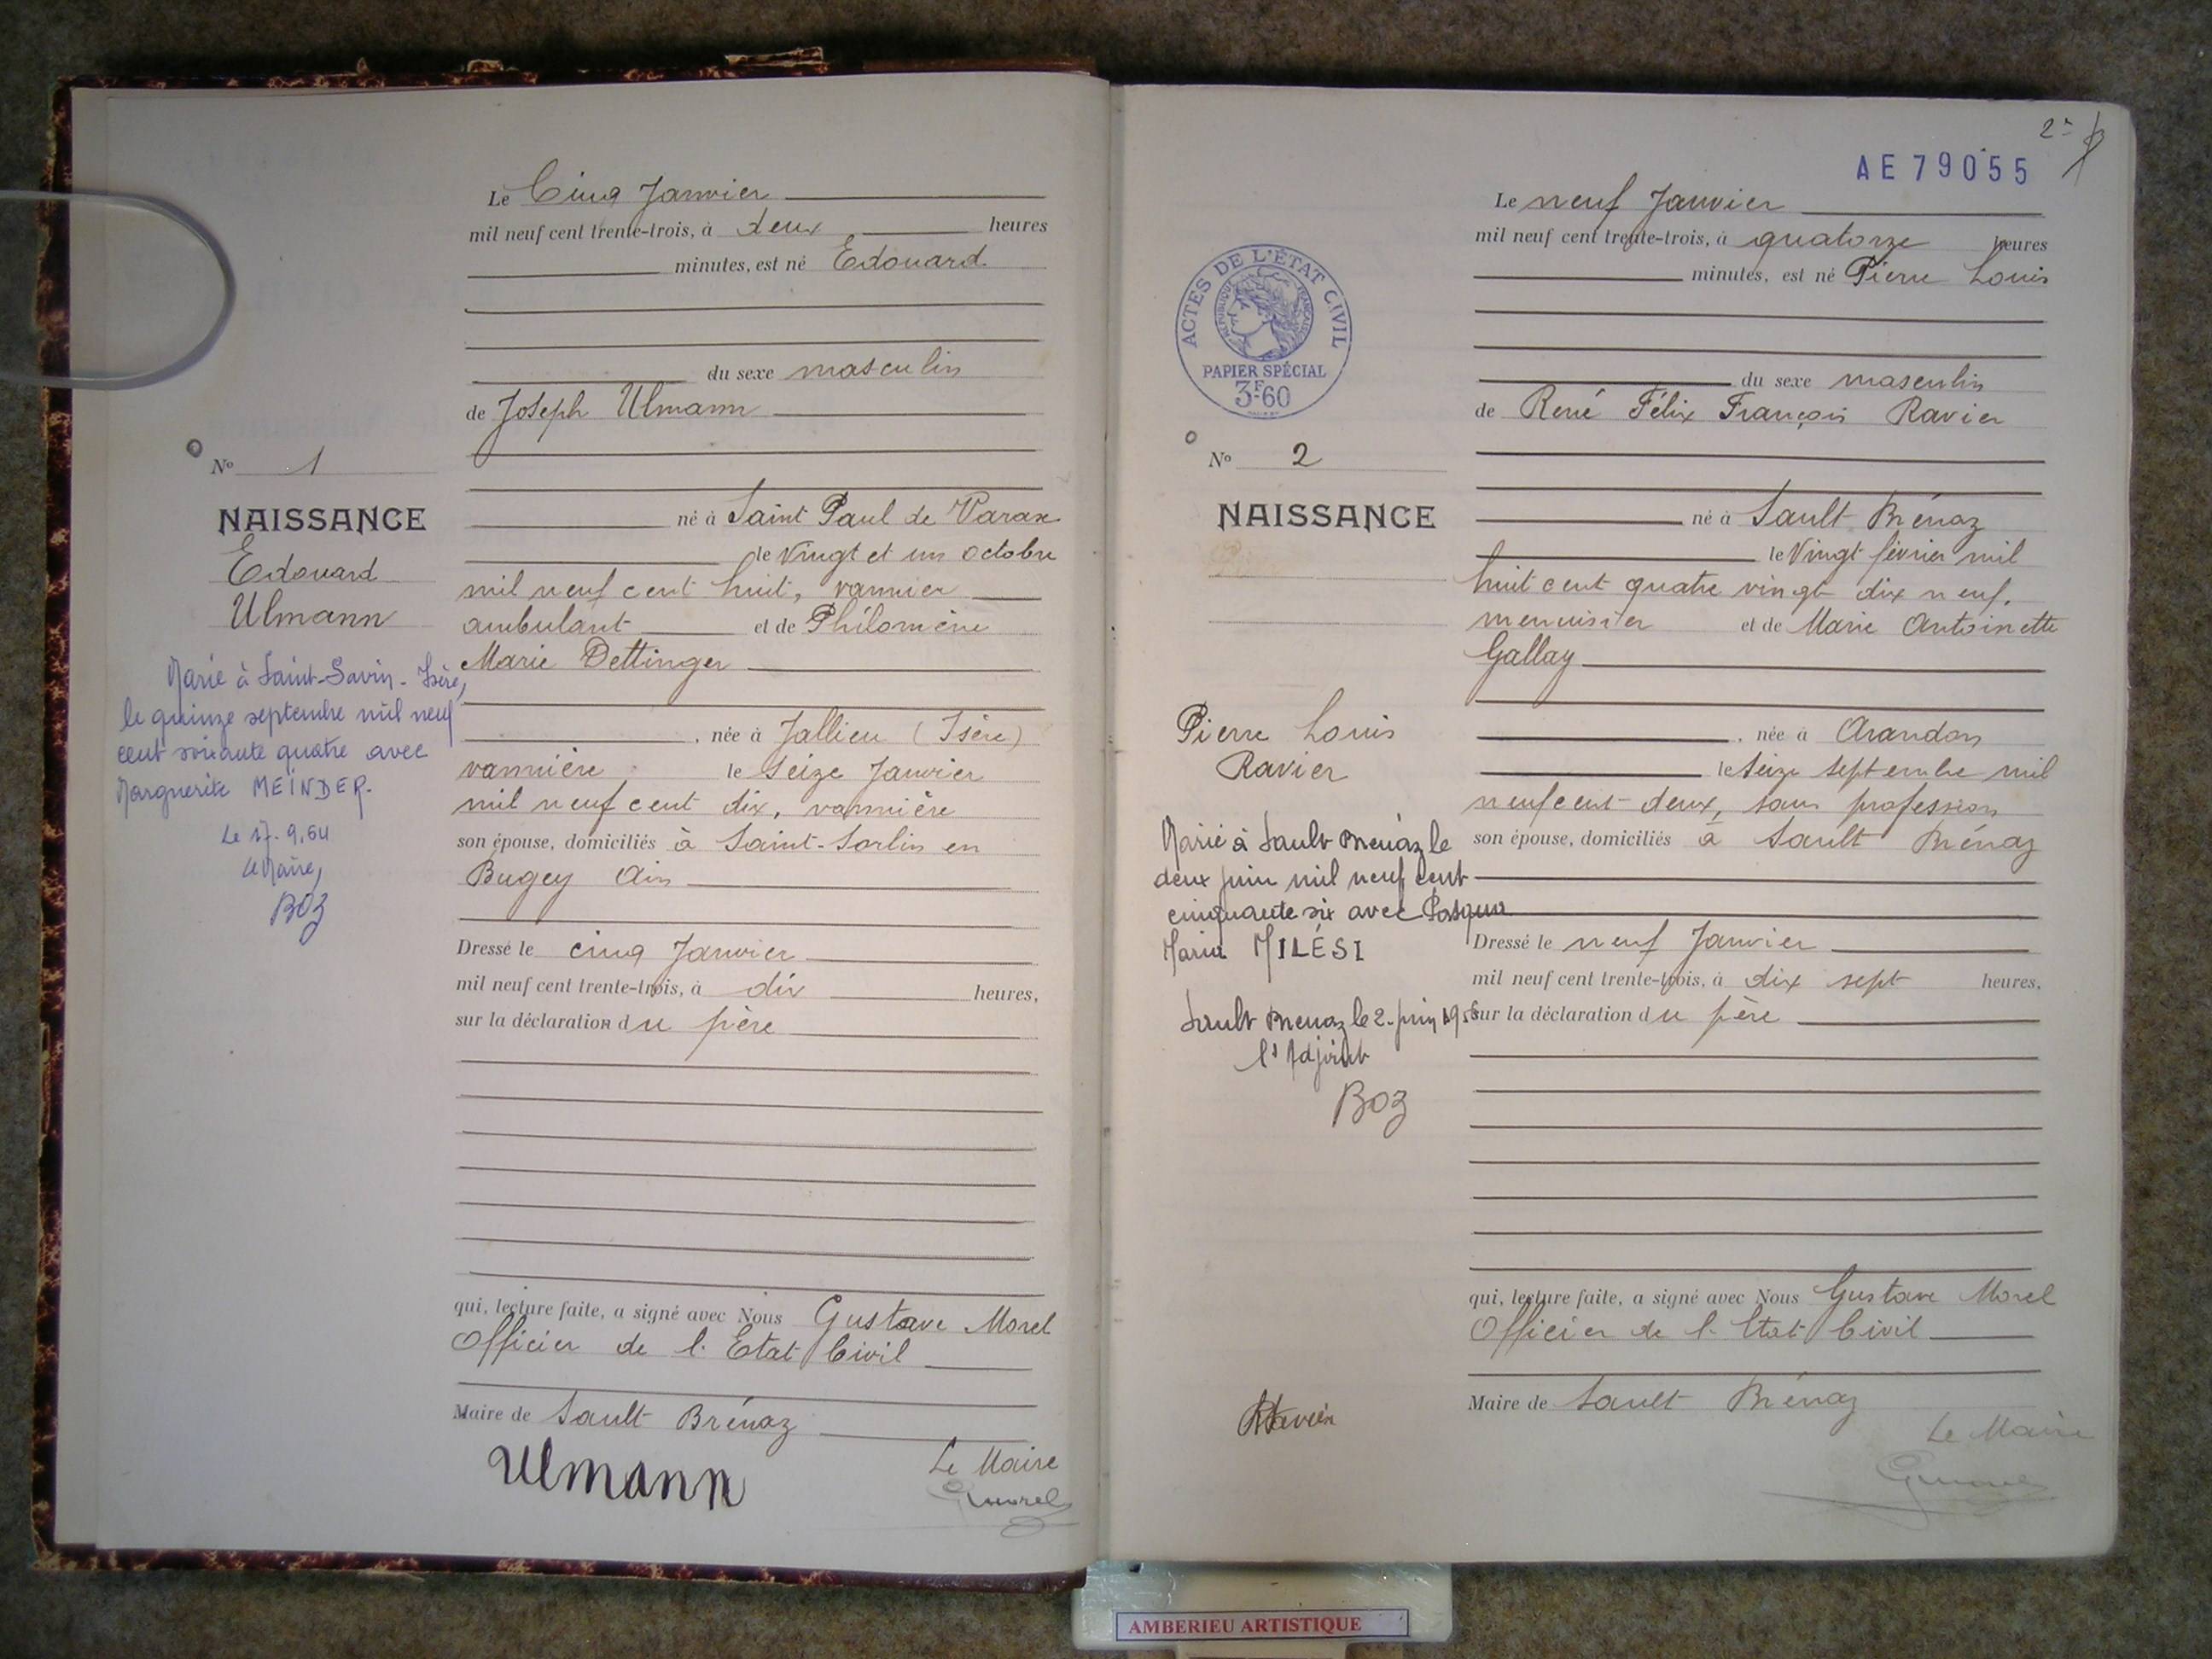 Le Cinq Janvier
mil neuf cent trente-trois, à deux heures
minutes, est né Edouard
du sexe masculin
de Joseph Ulmann
né à Saint Paul de Varax
le Vingt et un octobre
mil neuf cent huit, vannier
ambulant et de Philomène
Marie Dettinger
, née à Jallieu (Isère)
vannière le Seize Janvier
mil neuf cent dix, vannière
son épouse, domiciliés à Saint-Sorlin en
Bugey Ain
Dressé le cinq Janvier
mil neuf cent trente-trois, à dix heures,
sur la déclaration du père
qui, lecture faite, a signé avec Nous Gustave Morel
Officier de l'Etat Civil
Maire de Sault Brénaz
Ulmann
Le Maire
GMorel
No 1
NAISSANCE
Edouard
Ulmann
Marié à Saint-Savin-Isère,
le quinze septembre mil neuf
cent soixante quatre avec
Marguerite MEINDER.
Le 17.9.64
Le Maire,
BOZ
2e
AE 79055
Le neuf Janvier
mil neuf cent trente-trois, à quatorze heures
minutes, est né Pierre Louis
du sexe masculin
de René Félix François Ravier
né à Sault Brénaz
le Vingt février mil
huit cent quatre vingt dix neuf,
menuisier et de Marie Antoinette
Gallay
, née à Arandon
le Seize septembre mil
neuf cent deux, sans profession
son épouse, domiciliés à Sault Brénaz
Dressé le neuf Janvier
mil neuf cent trente-trois, à dix sept heures,
sur la déclaration du père
qui, lecture faite, a signé avec Nous Gustave Morel
Officier de l'Etat Civil
Maire de Sault Brénaz
Le Maire
GMorel
ACTES DE L'ÉTAT CIVIL
RÉPUBLIQUE FRANÇAISE
PAPIER SPÉCIAL
3F60
No 2
NAISSANCE
Pierre Louis
Ravier
Marié à Sault Brénaz le
deux juin mil neuf cent
cinquante six avec Pasqua
Maria MILÉSI
Sault Brenaz le 2 juin 1956
l'Adjoint
BOZ
Ravier
AMBERIEU ARTISTIQUE